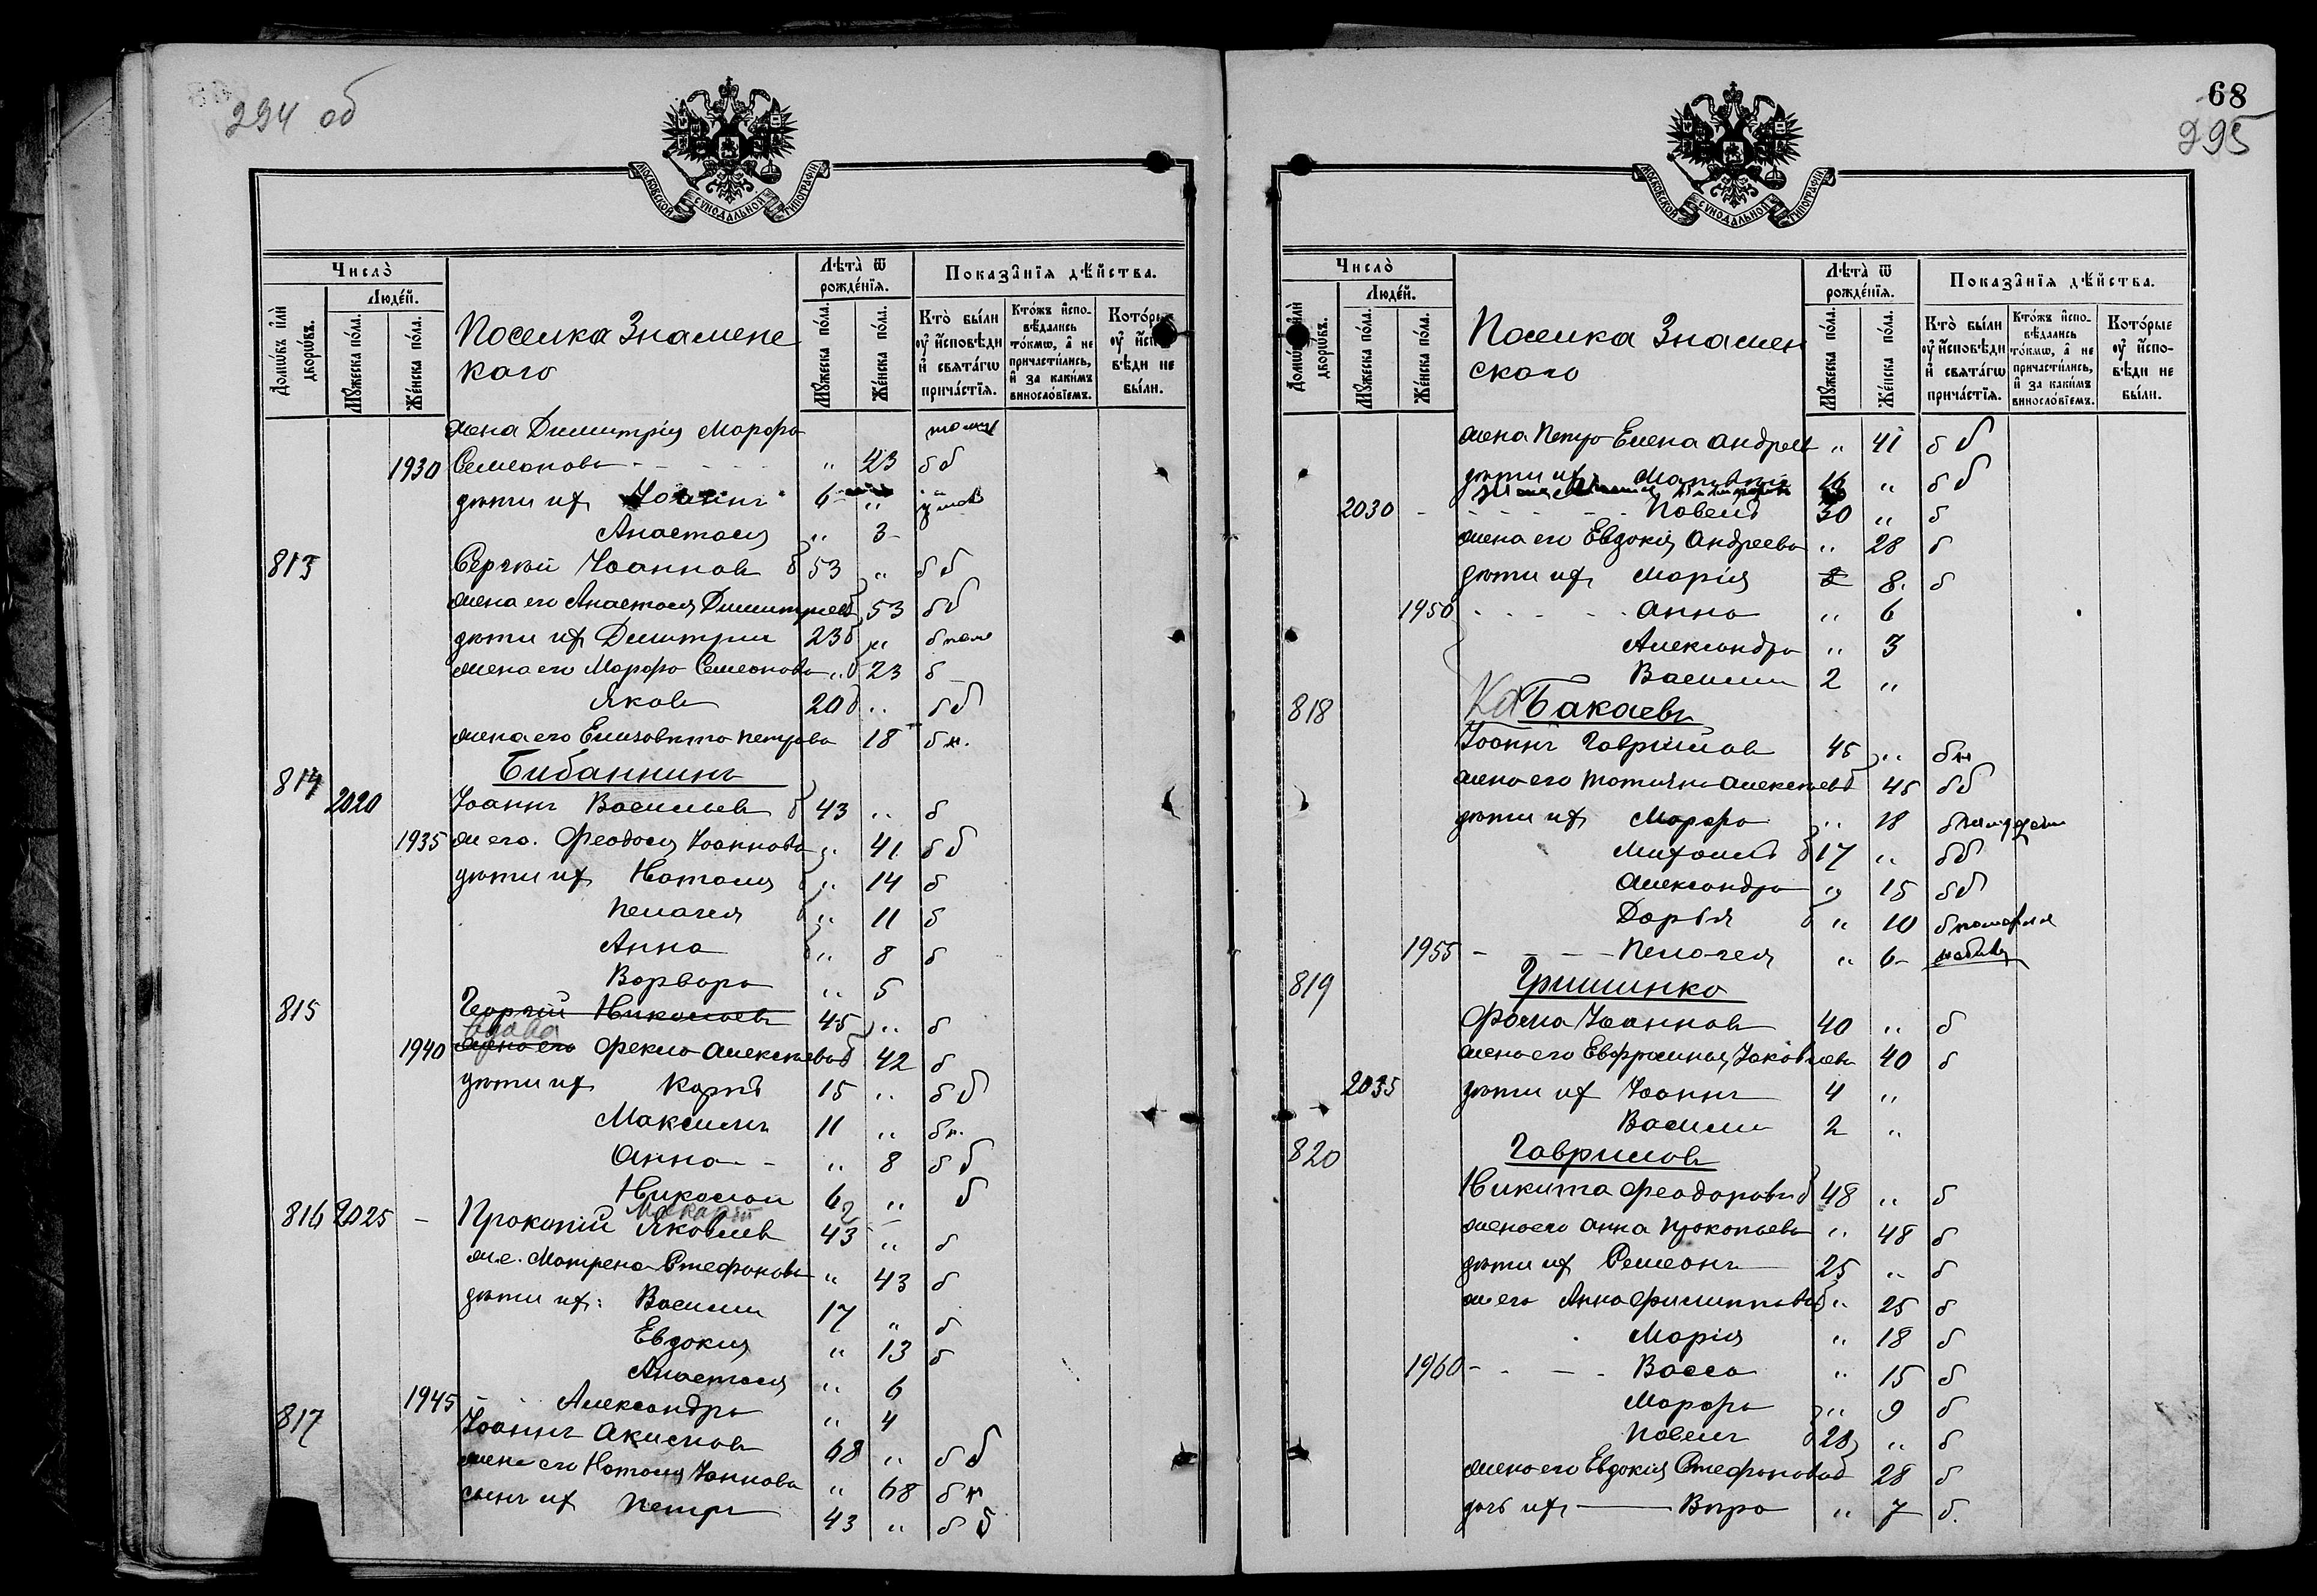 294 об
МОСКОВСКОЙ СѴНОДАЛЬНОЙ ТИПОГРАФІИ
Число̀
Людéй.
Домѡ́въ и҆лѝ дворѡ́въ.
Мꙋ́жеска по́ла.
Же́нска по́ла.
Поселка Знамене
каго
Лѣта̀ ѿ рожде́нїѧ.
Мꙋ́жеска по́ла.
Же́нска по́ла.
Показа̑нїѧ дѣ́йства.
Кто̀ бы́ли ᲂу҆ и҆сповѣ́ди и҆ свѧта́гѡ прича́стїѧ.
Кто́жъ и҆сповѣ́дались то́кмѡ, а҆ не причасти́лись, и҆ за каки́мъ винослóвїемъ.
Кото́рые ᲂу҆ и҆сповѣ́ди не бы́ли.
жена Димитрія Марфа
1930 Семеонова - - - „ 23 б б
дѣти их Іоаннъ 6 „
Анастасія „ 3
813 Сергѣй Іоаннов 53 „ б б
жена его Анастасія Димитріев 53 б б
дѣти их Димитрии 23 „ б
жена его Марфа Семеонова „ 23 б
Яков 20 „ б б
жена его Елизавета Петрова 18 б н.
Бибаннинъ
814 2020 Іоаннъ Васильев 43 „ б
1935 ж его. Феодосія Іоаннова „ 41 б б
дѣти их Наталія „ 14 б
Пелагея „ 11 б
Анна „ 8 б
Варвара „ 5
815 Георгій Николаевъ 45 „ б
вдова
1940 жена его Фекла Алексѣева 42 б
дѣти их Карпъ 15 „ б б
Максимъ 11 „ б н.
Анна - „ 8 б б
Николай 6 „ б
Макарій 2
816 2025 - Прокопій Яковлев 43 „ б
ж.е. Матрена Стефанова „ 43 б
дѣти их: Василии 17 „ б
Евдокія „ 13 б
Анастасія „ 6
1945 - Александра „ 4
817 Іоаннъ Акимов 68 „ б б
жена его Наталія Іоаннова „ 68 б н
сынъ их Петръ 43 „ б б
68
295
МОСКОВСКОЙ СѴНОДАЛЬНОЙ ТИПОГРАФІИ
Число̀
Людéй.
Домѡ́въ и҆лѝ дворѡ́въ.
Мꙋ́жеска по́ла.
Же́нска по́ла.
Поселка Знамен
ского
Лѣта̀ ѿ рожде́нїѧ.
Мꙋ́жеска по́ла.
Же́нска по́ла.
Показа̑нїѧ дѣ́йства.
Кто̀ бы́ли ᲂу҆ и҆сповѣ́ди и҆ свѧта́гѡ прича́стїѧ.
Кто́жъ и҆сповѣ́дались то́кмѡ, а҆ не причасти́лись, и҆ за каки́мъ винослóвїемъ.
Кото́рые ᲂу҆ и҆сповѣ́ди не бы́ли.
жена Петра Елена Андреев „ 41 б б
дѣти их Матвѣй 16 „ б б
2030 - - - - Павелъ 30 „ б
жена его Евдокія Андреева „ 28 б
дѣти их Марія 8. б
1950 - - - Анна „ 6
Александра „ 3
Василии 2 „
818 Ка Бакаевъ
Іоаннъ Гавріилов 45 „ б н
жена его Татіяна Алексѣев 45 б б
дѣти их Марфа „ 18 б
Михаилъ 17 „ б б
Александра „ 15 б б
Дарья „ 10 б
1955 - - - Пелагея „ 6
819 Гришинко
Фома Іоаннов 40 „ б
жена его Евфросинія Іаковлева 40 б
2035 дѣти их Іоаннъ 4 „
Василии 2 „
820 Гаврилов
Никита Феодоров 48 „ б
жена его Анна Прокопьева „ 48 б
дѣти их Семеонъ 25 „ б
ж его Анна Филиппова „ 25 б
Марія „ 18 б
1960 - - - Васса „ 15 б
Марфа „ 9 б
Павелъ 28 „ б
жена его Евдокія Стефанова 28 б
дочь их Вѣра „ 7 б.